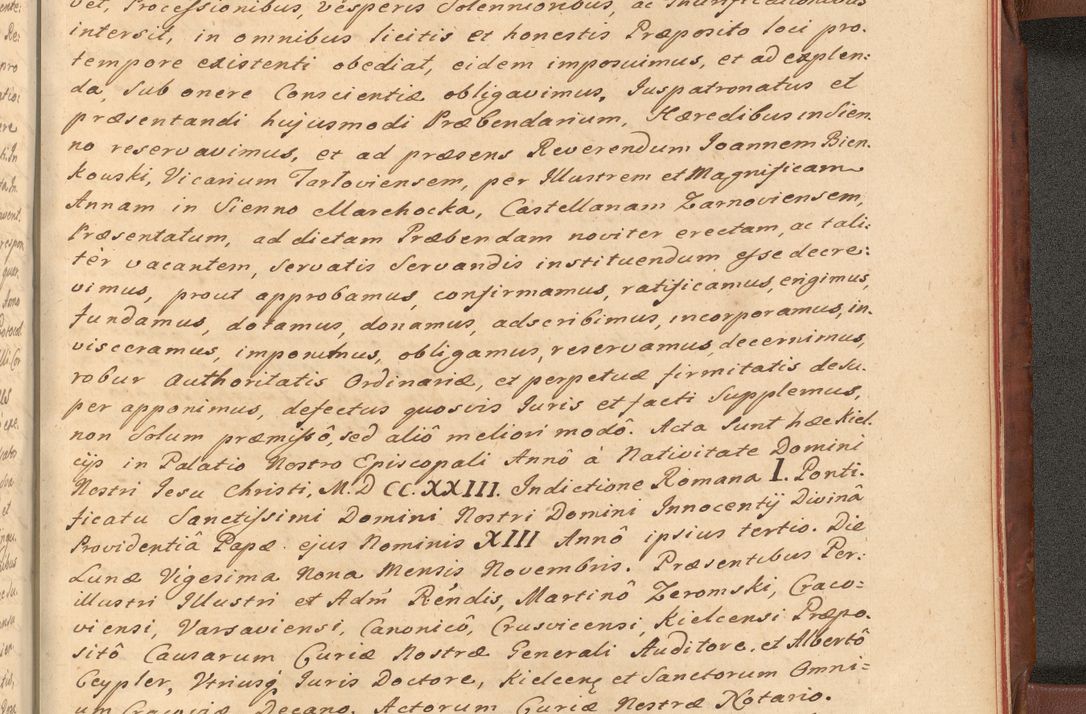 vet, Processionibus, Vesperis Solennioribus, ac Thurificationibus
intersit, in omnibus licitis et honestis Præposito loci pro.
tempore existenti obediat, eidem imposuimus, et ad explen:
da, sub onere Conscientiæ obligavimus, Juspatronatus et
præsentandi hujusmodi Præbendarium, Hæredibus in Sien
no reservavimus, et ad præsens Reverendum Joannem Bien.
kouski, Vicarium Tarloviensem, per Illustrem et Magnificam
Annam in Sienno Marchocka, Castellanam Zarnoviensem,
Præsentatum, ad dictam Præbendam noviter erectam, ac tali:
ter vacantem, servatis servandis instituendum esse decre:
vimus, prout approbamus, confirmamus, ratificamus, erigimus,
fundamus, dotamus, donamus, adscribimus, incorporamus, in,
visceramus, imponimus, obligamus, reservamus, decernimus,
robur Authoritatis Ordinariæ, et perpetuæ firmitatis desu.
per apponimus, defectus quosvis Juris et facti Supplemus,
non solum præmissô, sed aliô meliori modô. Acta sunt hæc Kiel.
cijs in Palatio Nostro Episcopali Annô à Nativitate Domini
Nostri Jesu Christi, M.D CC.XXIII. Indictione Romana I. Ponti.
ficatu Sanctissimi Domini Nostri Domini Innocentij Divinâ
Providentiâ Papæ ejus Nominis XIII Annô ipsius tertio. Die
Lunæ Vigesima Nona Mensis Novembris. Præsentibus Per:
illustri Illustri et Adm̃ Rẽndis, Martinô Zeromski, Craco=
viensi, Varsaviensi, Canonicô, Crusvicensi, Kielcensi Præpo.
sitô Causarum Curiæ Nostræ Generali Auditore, et Albertô
Ceypler, Vtriusq́ Juris Doctore, Kielceñ et Sanctorum Omni=
um Cracoviæ Decano, Actorum Curiæ Nostræ Notario.